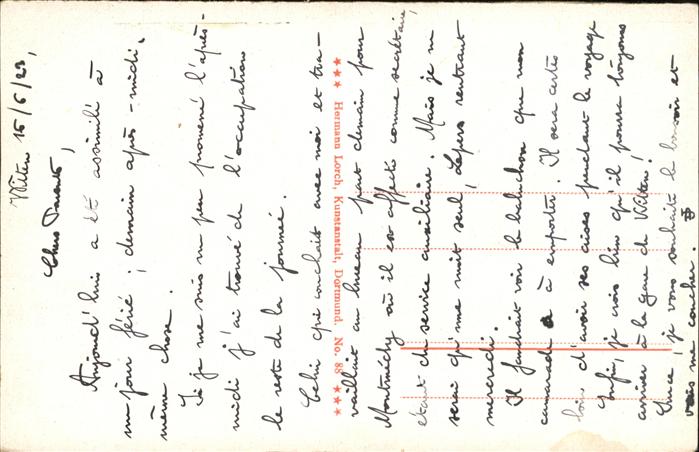 Witten 15/6/23,
Chers Parents,
Aujourd'hui a été assimilé à
un jour férié ; demain après-midi,
même chose.
Si je me suis un peu promené l'après-
midi j'ai trouvé de l'occupation
le reste de la journée.
Celui qui couchait avec moi et tra-
★★★ Hermann Lorch, Kunstanstalt, Dortmund. No. 88 ★★★
vaillait au bureau part demain pour
Montmédy où il est affecté comme secrétaire,
étant du service auxiliaire. Mais je ne
serai qu'une nuit seul, Lepers rentrant
mercredi.
Il faudrait voir le baluchon que mon
camarade a à emporter. Il sera certes
loin d'avoir ses aises pendant le voyage
Enfin, je crois bien qu'il pourra toujours
arriver à la gare de Witten!
Sur ce, je vous souhaite le bonsoir et
vais me coucher.